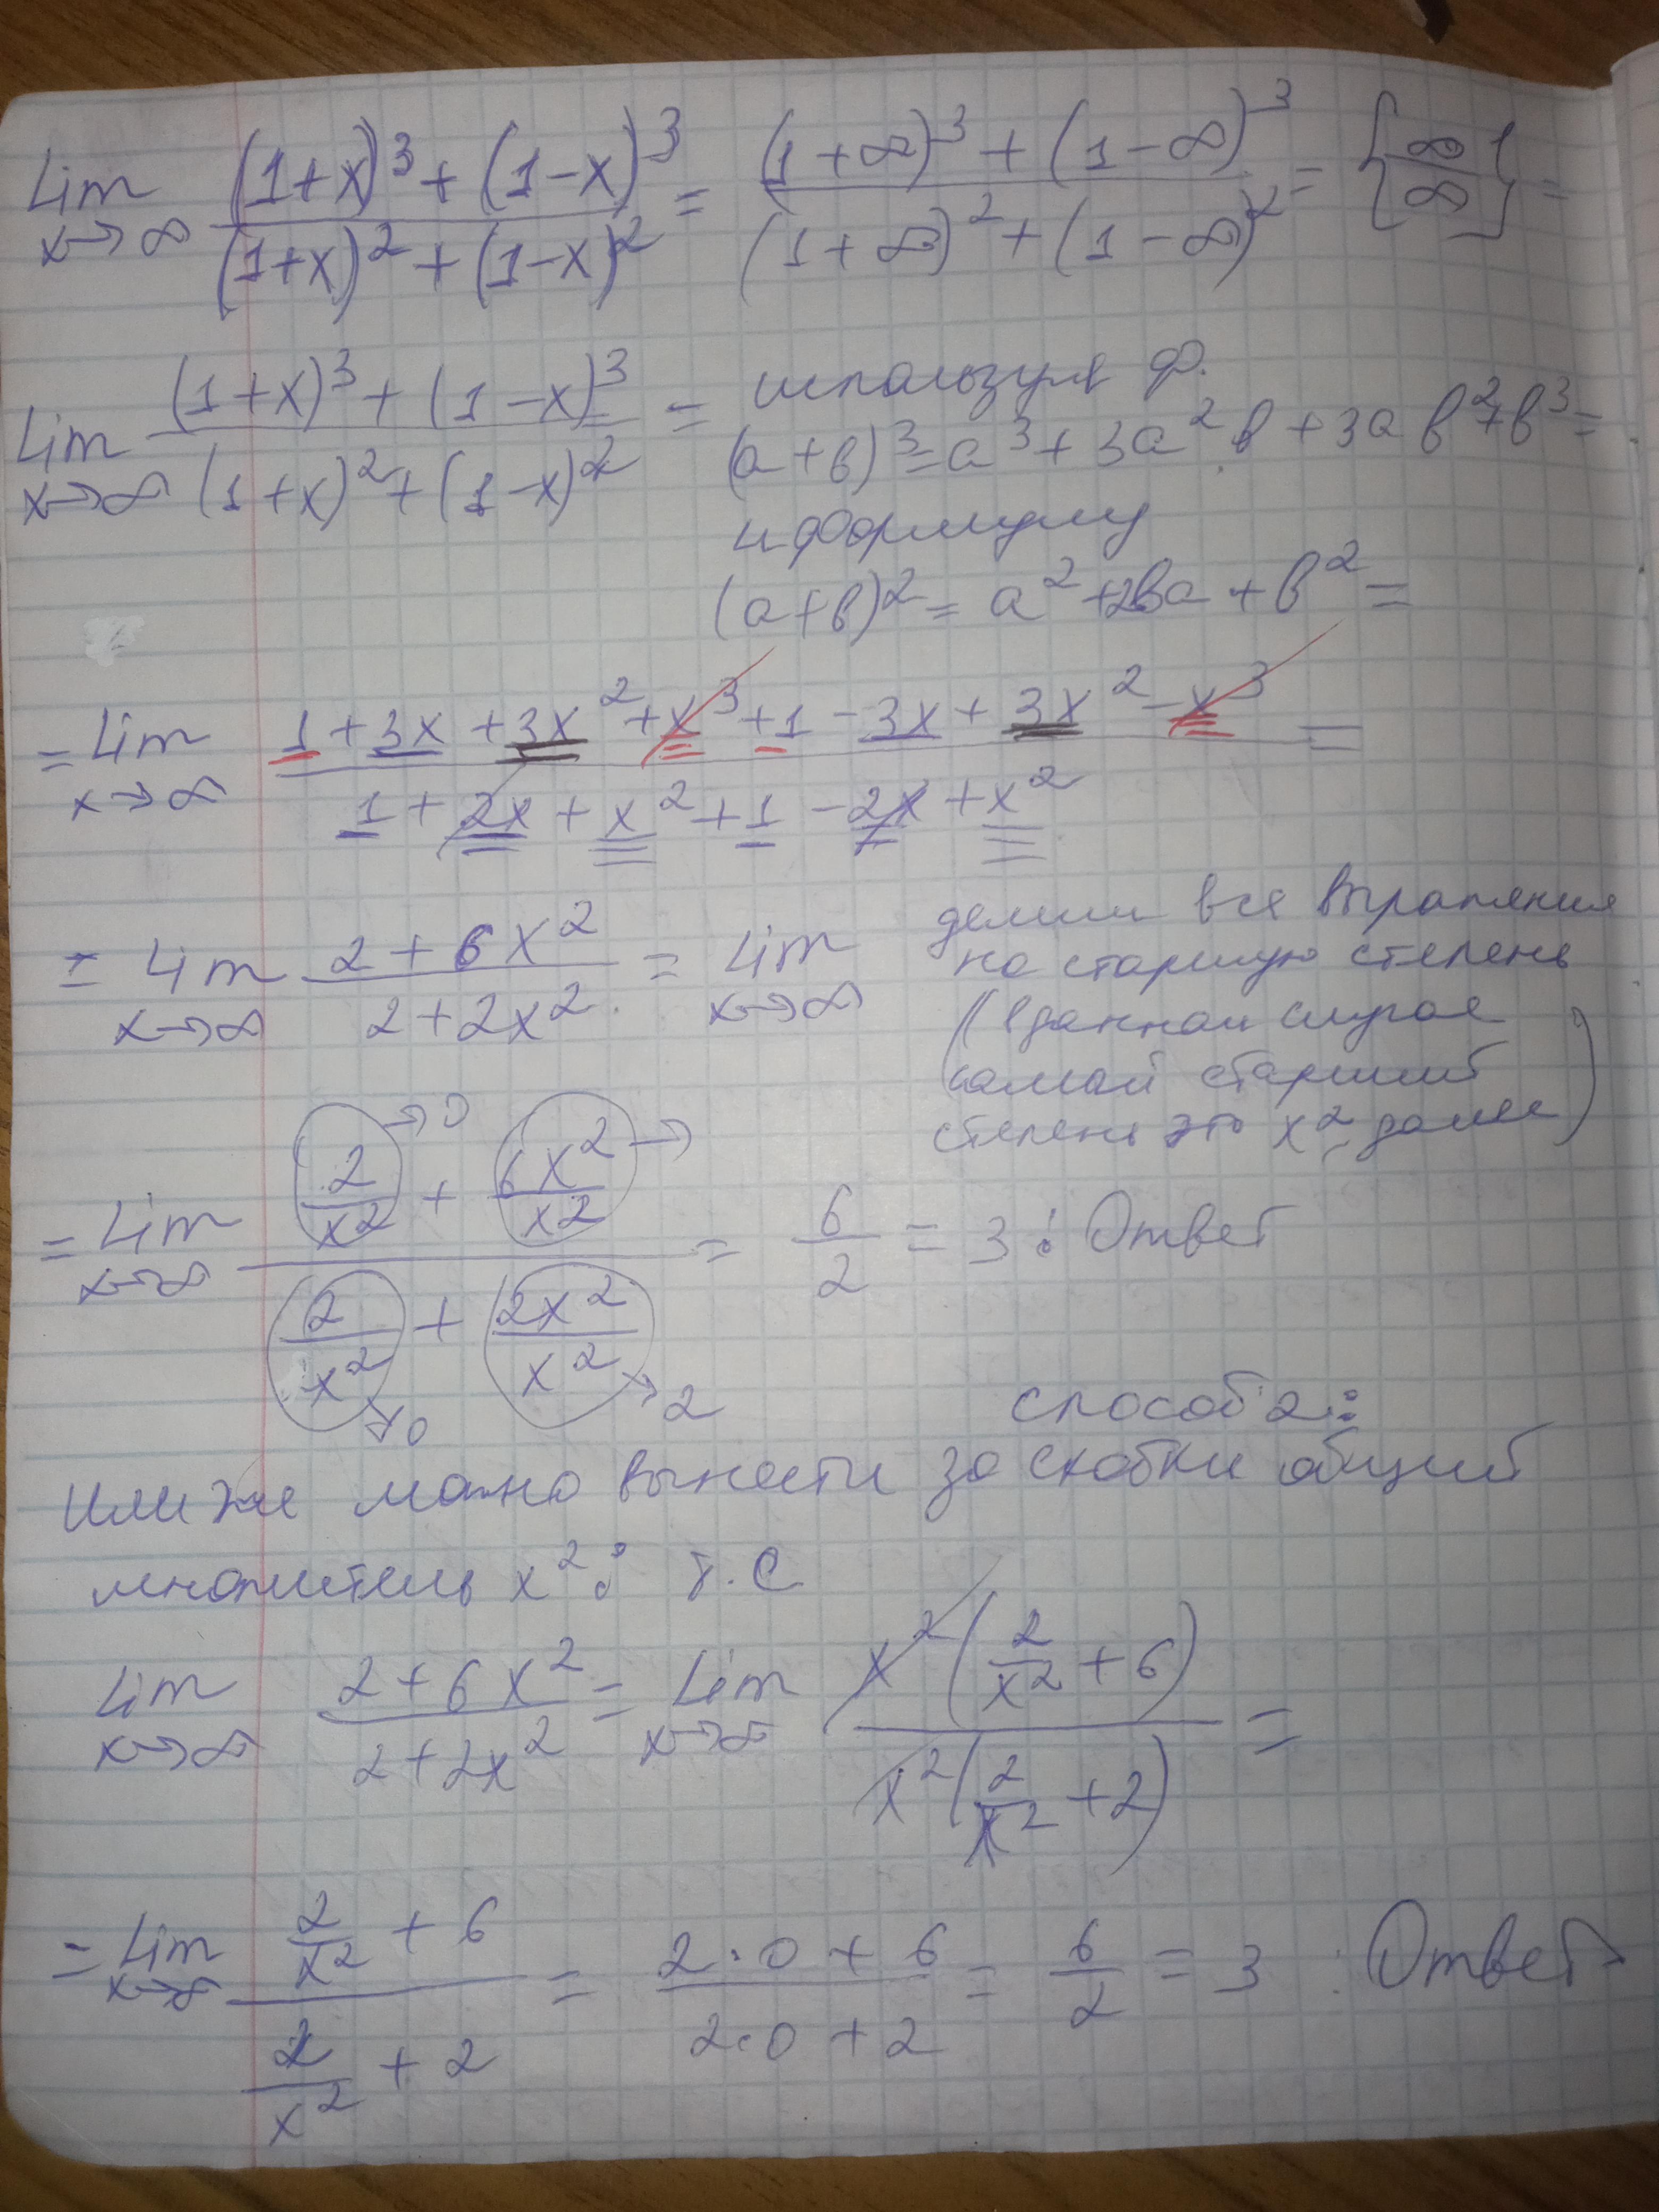 Lim x→∞ ((1+x)³ + (1-x)³)/((1+x)² + (1-x)²) = ((1+∞)³ + (1-∞)³)/((1+∞)² + (1-∞)²) = {∞/∞} =
Lim x→∞ ((1+x)³ + (1-x)³)/((1+x)² + (1-x)²) =
используя ф.
(a+b)³ = a³ + 3a²b + 3ab² + b³ =
и формулу
(a+b)² = a² + 2ba + b² =
= Lim x→∞ (1 + 3x + 3x² + x³ + 1 - 3x + 3x² - x³)/(1 + 2x + x² + 1 - 2x + x²) =
= Lim x→∞ (2 + 6x²)/(2 + 2x²) = Lim x→∞
делим все выражения
на старшую степень
(в данном случае
самой старшит
степень это x², далее)
= Lim x→∞ (2/x² →0 + 6x²/x² →)/(2/x² →0 + 2x²/x² →2) = 6/2 = 3 : Ответ
способ 2:
Или же можно вынести за скобки общий
множитель x²: т.е
Lim x→∞ (2 + 6x²)/(2 + 2x²) = Lim x→∞ (x²(2/x² + 6))/(x²(2/x² + 2)) =
= Lim x→∞ (2/x² + 6)/(2/x² + 2) = (2·0 + 6)/(2·0 + 2) = 6/2 = 3 : Ответ